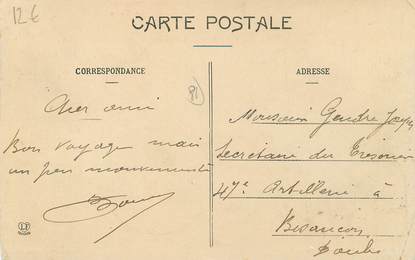 12€
CARTE POSTALE
CORRESPONDANCE
ADRESSE
Cher ami
Bon voyage mais
un peu mouvementé
Monsieur Gendre Joseph
Secrétaire du Trésorier
47e Artillerie à
Besançon
Doubs